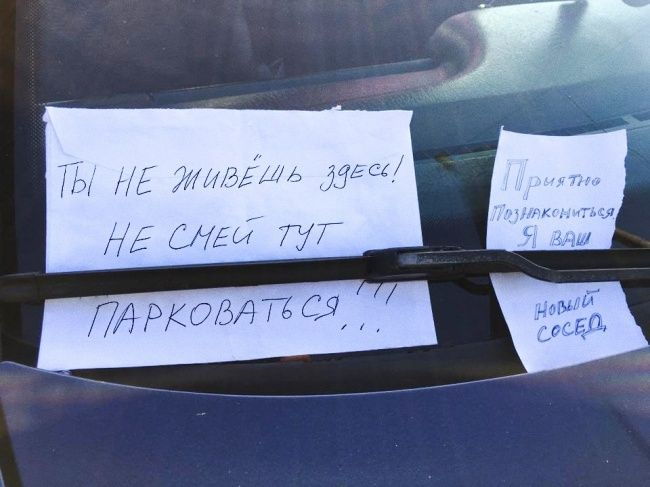 ТЫ НЕ ЖИВЁШЬ ЗДЕСЬ!
НЕ СМЕЙ ТУТ
ПАРКОВАТЬСЯ!!!
Приятно
познакомиться
Я ваш
новый
сосед